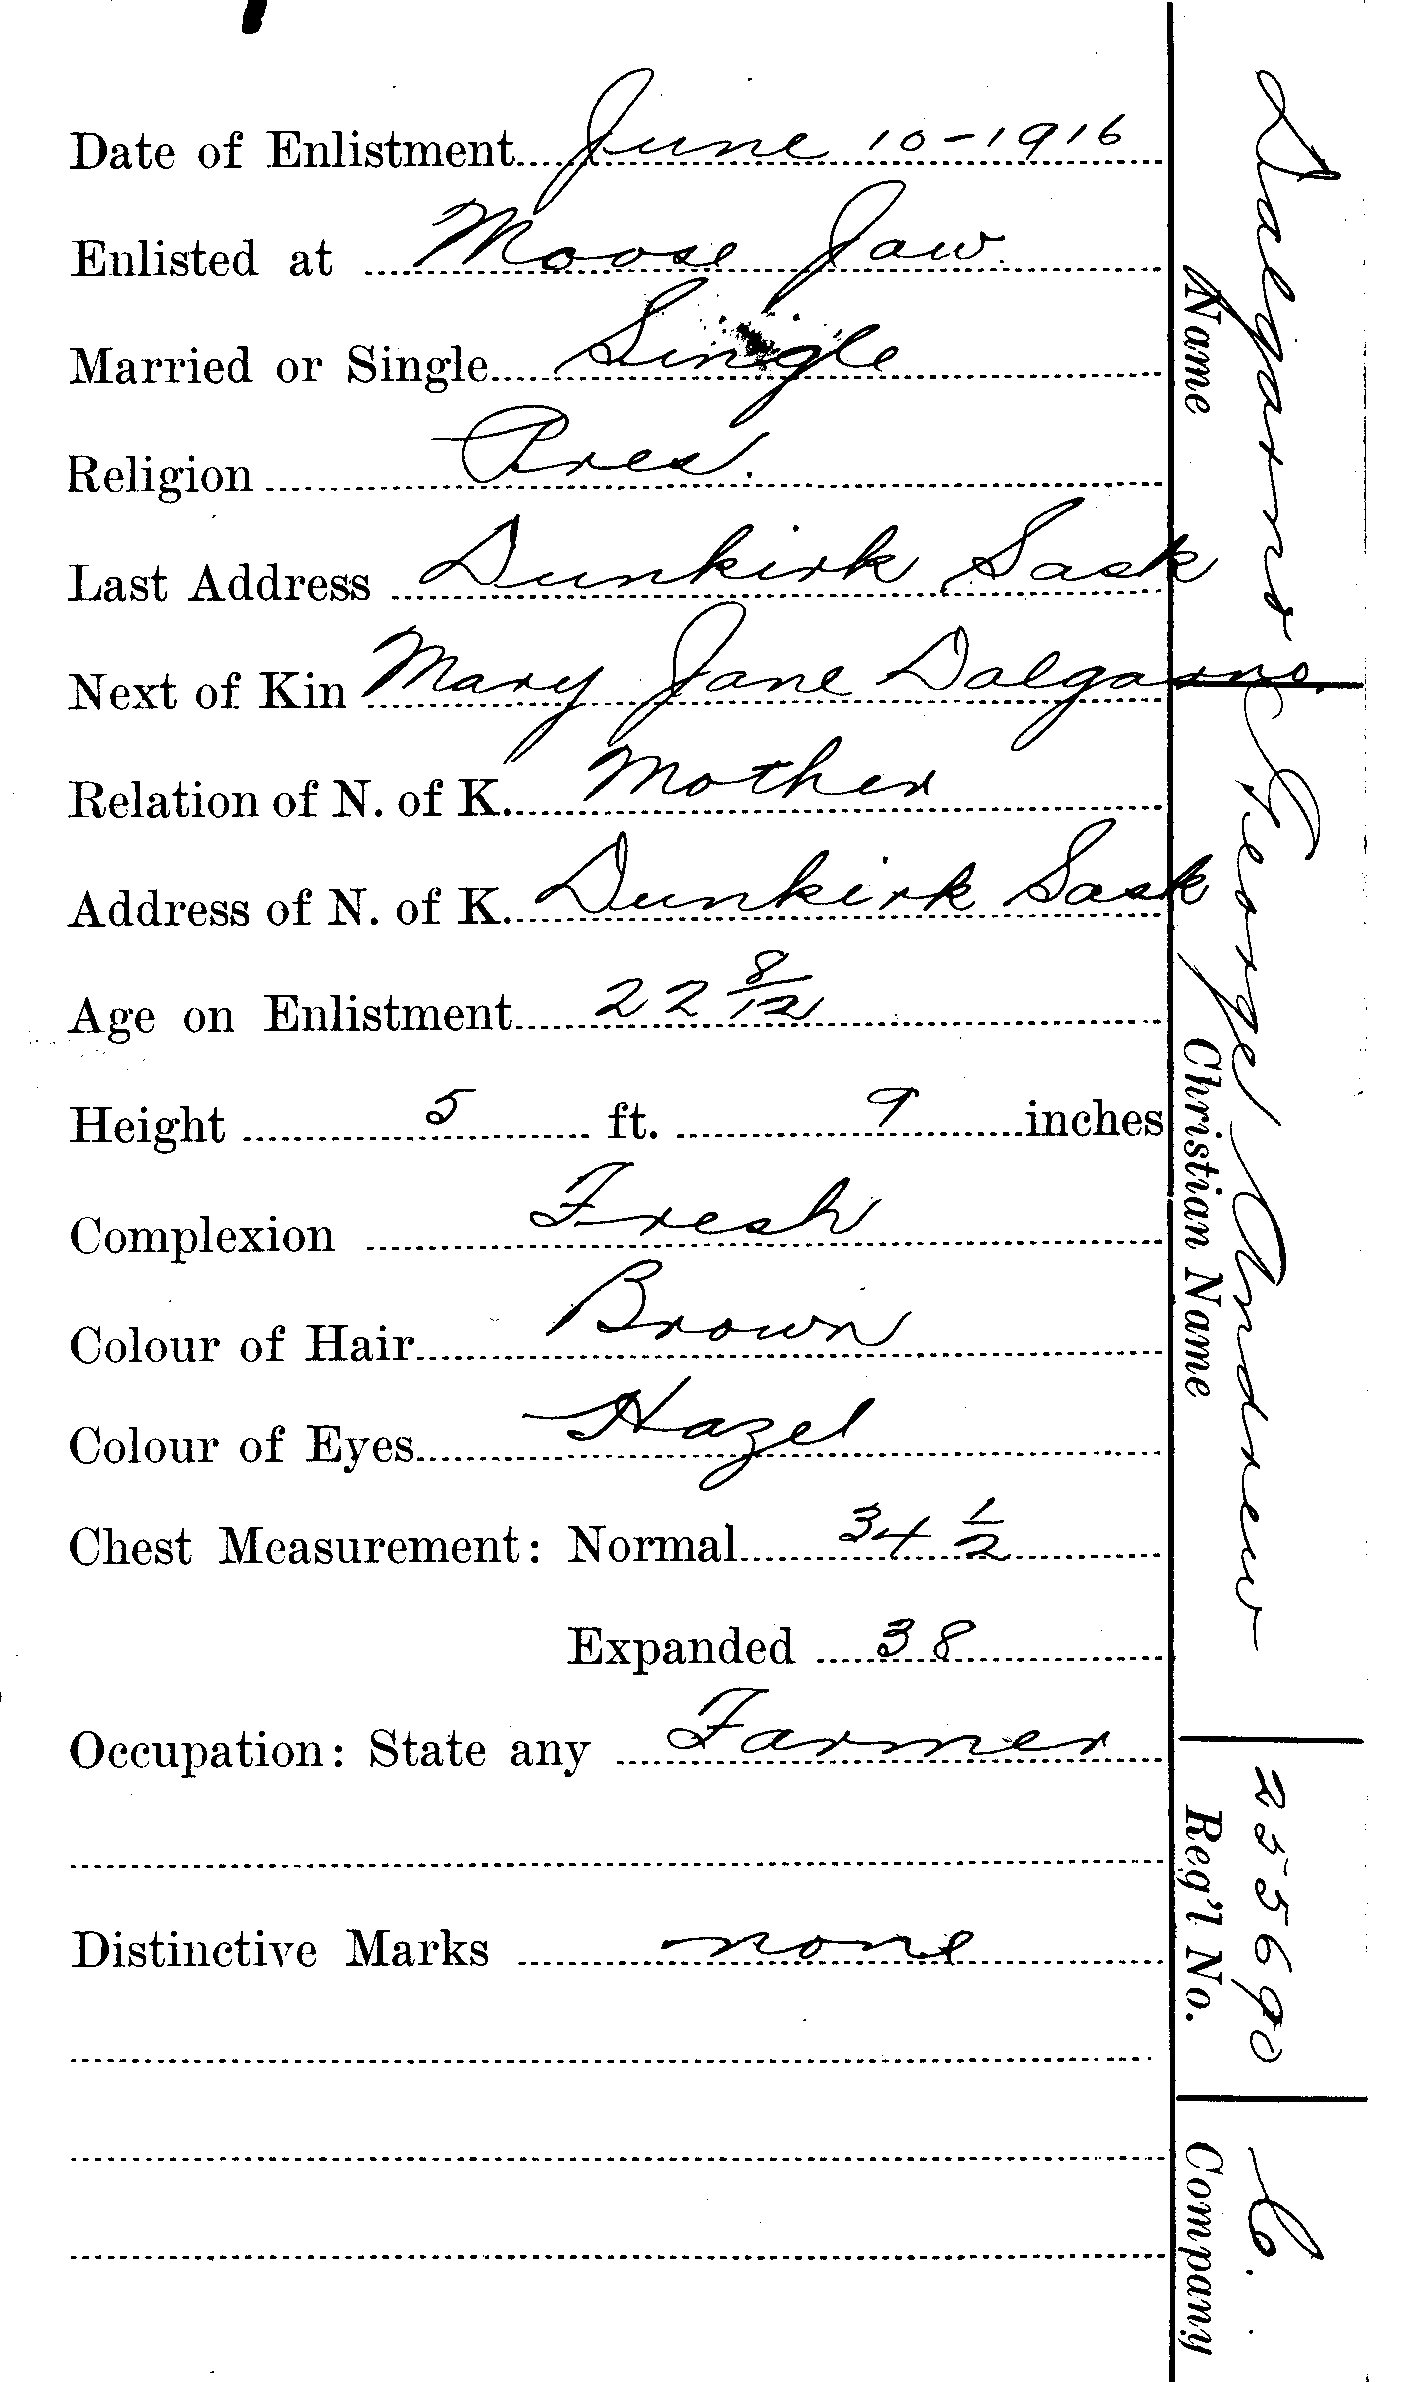 Date of Enlistment June 10-1916
Enlisted at Moose Jaw.
Married or Single Single
Religion Pres.
Last Address Dunkirk Sask
Next of Kin Mary Jane Dalgarno.
Relation of N. of K. Mother
Address of N. of K. Dunkirk Sask
Age on Enlistment 22 8/12
Height 5 ft. 9 inches
Complexion Fresh
Colour of Hair Brown
Colour of Eyes Hazel
Chest Measurement: Normal 34 1/2
Expanded 38
Occupation: State any Farmer
Distinctive Marks none
Dalgarno George Andrew 255690 C.
Name Christian Name Reg'l No. Company